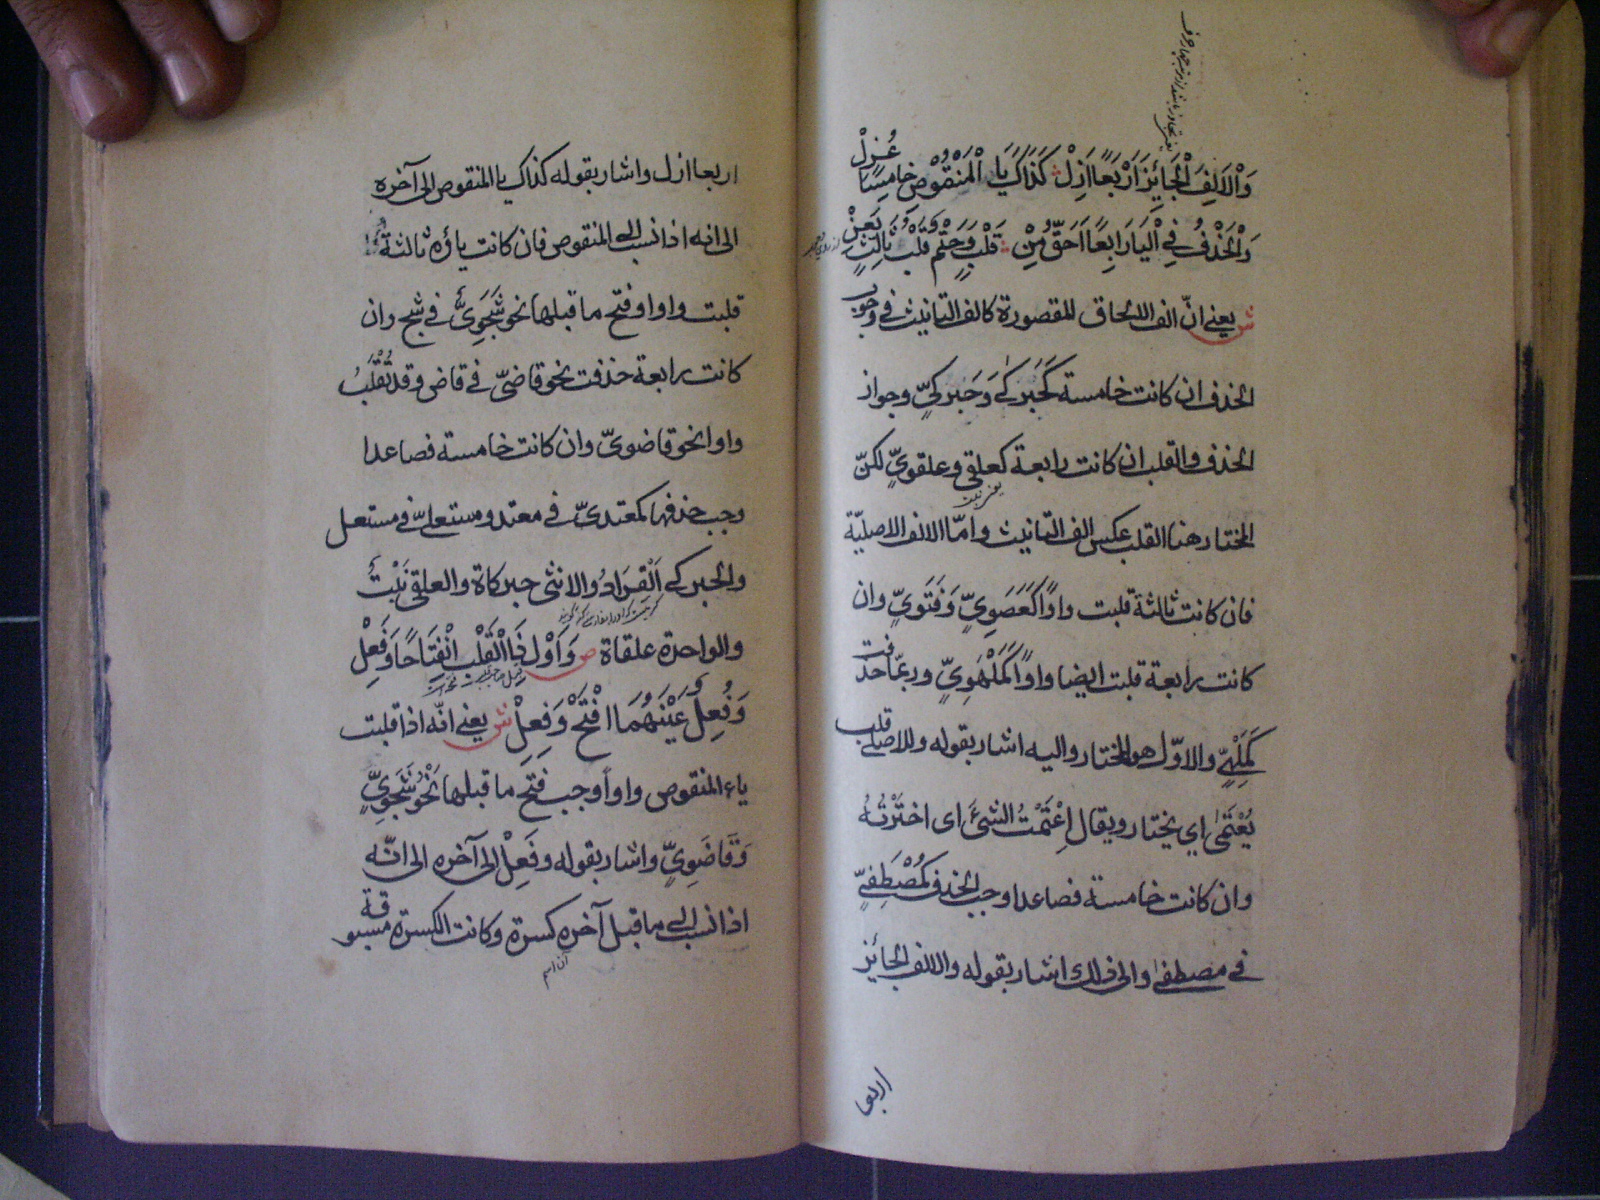 وَالْاَلِفَ الْجَائِزَ اَرْبَعًا اَزِلْ كَذَاكَ يَا الْمَنْقُوْصِ خَامِسًا عُزِلْ
وَالْحَذْفُ فِي الْيَا رَابِعًا اَحَقُّ مِنْ قَلْبٍ وَحَتْمٌ قَلْبُ ثَالِثٍ يَعِنْ
ش يعني انّ الف الالحاق المقصورة كالف التانيث في وجوب
الحذف ان كانت خامسة كَحَبَركٰى وَحَبركيٍّ وجواز
الحذف والقلب ان كانت رابعة كعلقى وعلقويٍّ لكنّ
المختار هنا القلب عكس الف التانيث وامّا الالف الاصليّة
فان كانت ثالثة قلبت واوًا كَعَصَوِيٍّ وَفَتَوِيٍّ وان
كانت رابعة قلبت ايضا واوًا كَمَلْهَوِيٍّ وربمّا حذفت
كَمَلْهِيٍّ والاوّل هو المختار واليه اشار بقوله وللاصلى قلب
يُعْتَمىٰ اي يختار ويقال اِعْتَمْتُ الشئَ اى اخْتَرْتُهُ
وان كانت خامسة فصاعدا وجب الحذف كَمُصْطَفِيٍّ
في مصطفىٰ والى ذلك اشار بقوله والالف الجائز
اربعا
اربعا ازل واشار بقوله كذاك يا المنقوص الى آخره
الى انه اذا نسب الى المنقوص فان كانت ياؤه ثالثة
قلبت واوا وفتح ما قبلها نحو شَجَوِىٌّ في شج وان
كانت رابعة حذفت نحو قاضىّ في قاض وقد تُقْلَبُ
واوا نحو قاضوىّ وان كانت خامسة فصاعدا
وجب حذفها كمعتدىّ في معتد ومستعلىّ في مستعل
والحبركى اَلْقُرَادُ والانثى حبركاة والعلقى نَبْتٌ
والواحدة علقاة ص وَاَوْلِ ذَا الْقَلْبِ انْفِتَاحًا وَفَعِلْ
وَفُعِلٌ عَيْنَهُمَا افْتَحْ وَفِعِلْ ش يعني انّه اذا قلبت
ياء المنقوص واواً وجب فتح ما قبلها نَحْوُ شَجَوِيٍّ
وَقَاضَوِيٍّ واشار بقوله وفَعِلْ الى آخره الى انّه
اذا نسب الى ما قبل آخره كسرة وكانت الكسرة مسبوقة